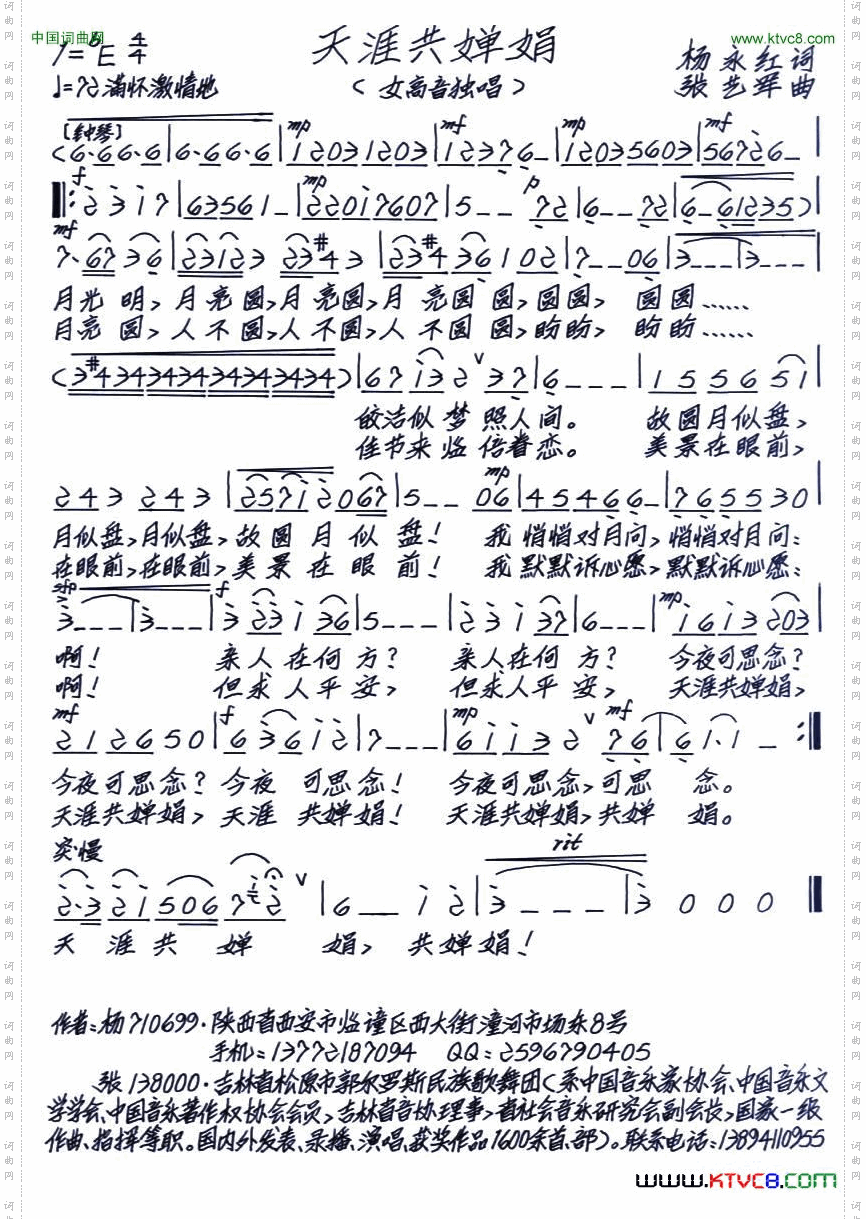 中国词曲网
www.ktvc8.com
天涯共婵娟
1=ᵇE 4/4
(女高音独唱)
杨永红词
♩=72 满怀激情地
张艺军曲
[钟琴] mp mf mp mf
(6·66·6|6·66·6|12031203|12376_|12035603|56726_|
f mp p
‖:2317|63561_|22017607|5__72|6__72|6_61235)|
mf
7·6736|23123 23#43|23#436102|7__06|3___|3___|
月光明,月亮圆,月亮圆,月亮圆圆,圆圆,圆圆……
月亮圆,人不圆,人不圆,人不圆圆,盼盼,盼盼……
(3#43434343434343434)|67132ᵛ37|6___|155651|
皎洁似梦照人间。 故圆月似盘,
佳节来临倍眷恋。 美景在眼前,
mp
243243|25712067|5__06|45466_|7655 30|
月似盘,月似盘,故圆月似盘! 我悄悄对月问,悄悄对月问:
在眼前,在眼前,美景在眼前! 我默默诉心愿,默默诉心愿:
sfp f mp
3___|3___|323136|5___|23137|6___|1613203|
啊! 亲人在何方? 亲人在何方? 今夜可思念?
啊! 但求人平安, 但求人平安, 天涯共婵娟,
mf f mp mf
212650|63612|7___|61132ᵛ76|61·1_:‖
今夜可思念?今夜可思念! 今夜可思念,可思念。
天涯共婵娟,天涯共婵娟! 天涯共婵娟,共婵娟。
突慢 rit
2·3 21 506 712ᵛ|6__12|3___|3000‖
天涯共婵娟, 共婵娟!
作者:杨710699·陕西省西安市临潼区西大街潼河市场东8号
手机:13772187094 QQ:2596790405
张138000·吉林省松原市郭尔罗斯民族歌舞团(系中国音乐家协会、中国音乐文
学学会、中国音乐著作权协会会员,吉林省音协理事,省社会音乐研究会副会长,国家一级
作曲、指挥等职。国内外发表、录播、演唱、获奖作品1600余首、部)。联系电话:13894110955
www.KTVC8.com